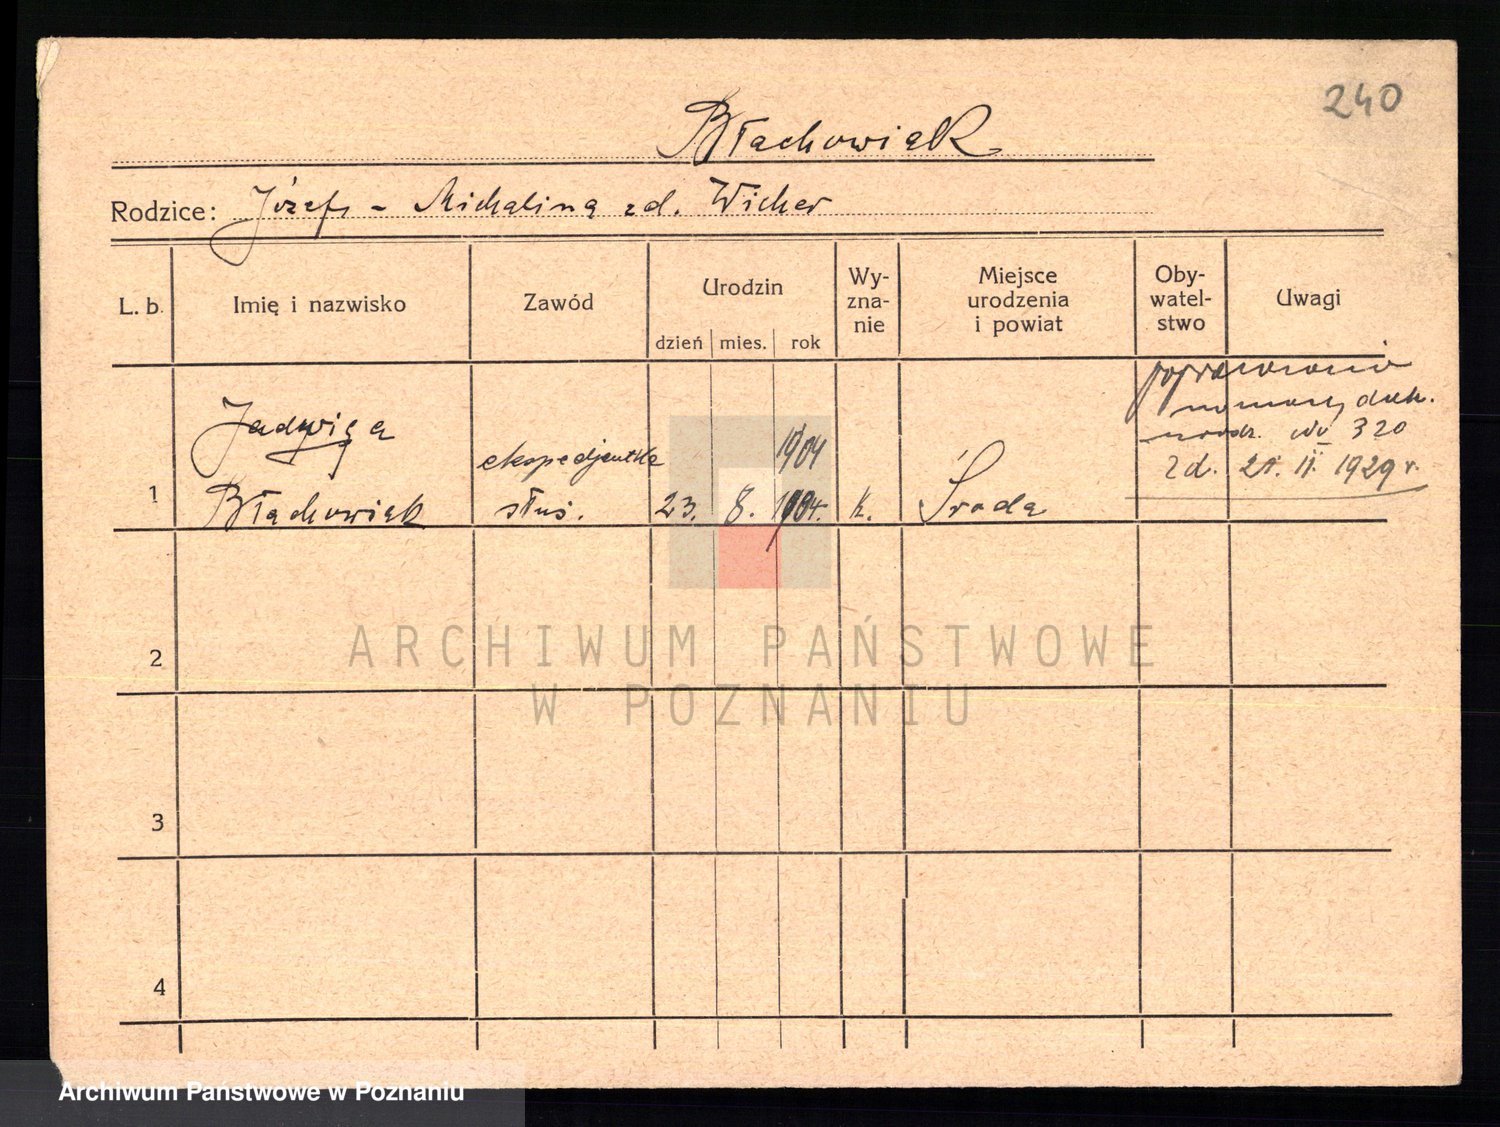 240
Błachowiak
Rodzice: Józef, - Michalina zd. Wicher
L. b. Imię i nazwisko Zawód Urodzin dzień mies. rok Wy-zna-nie Miejsce urodzenia i powiat Oby-watel-stwo Uwagi
poprawiono
duk.
Jadwiga
urodz. 320
ekspedjentka 1904
zd. 21. II. 1929 r.
1 Błachowiak służ. 23. 8. 1904. k. Środa
2
3
4
ARCHIWUM PAŃSTWOWE
W POZNANIU
Archiwum Państwowe w Poznaniu